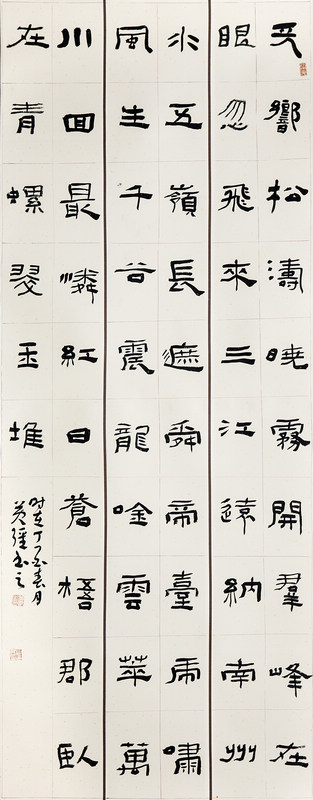 天響松濤曉霧開羣峰在
眼忽飛來三江遠納南州
水五嶺長遮舜帝臺虎嘯
風生千谷震龍唫雲萃萬
川回最憐紅日蒼梧郡臥
在青螺翠玉堆
時在丁酉春月
書之